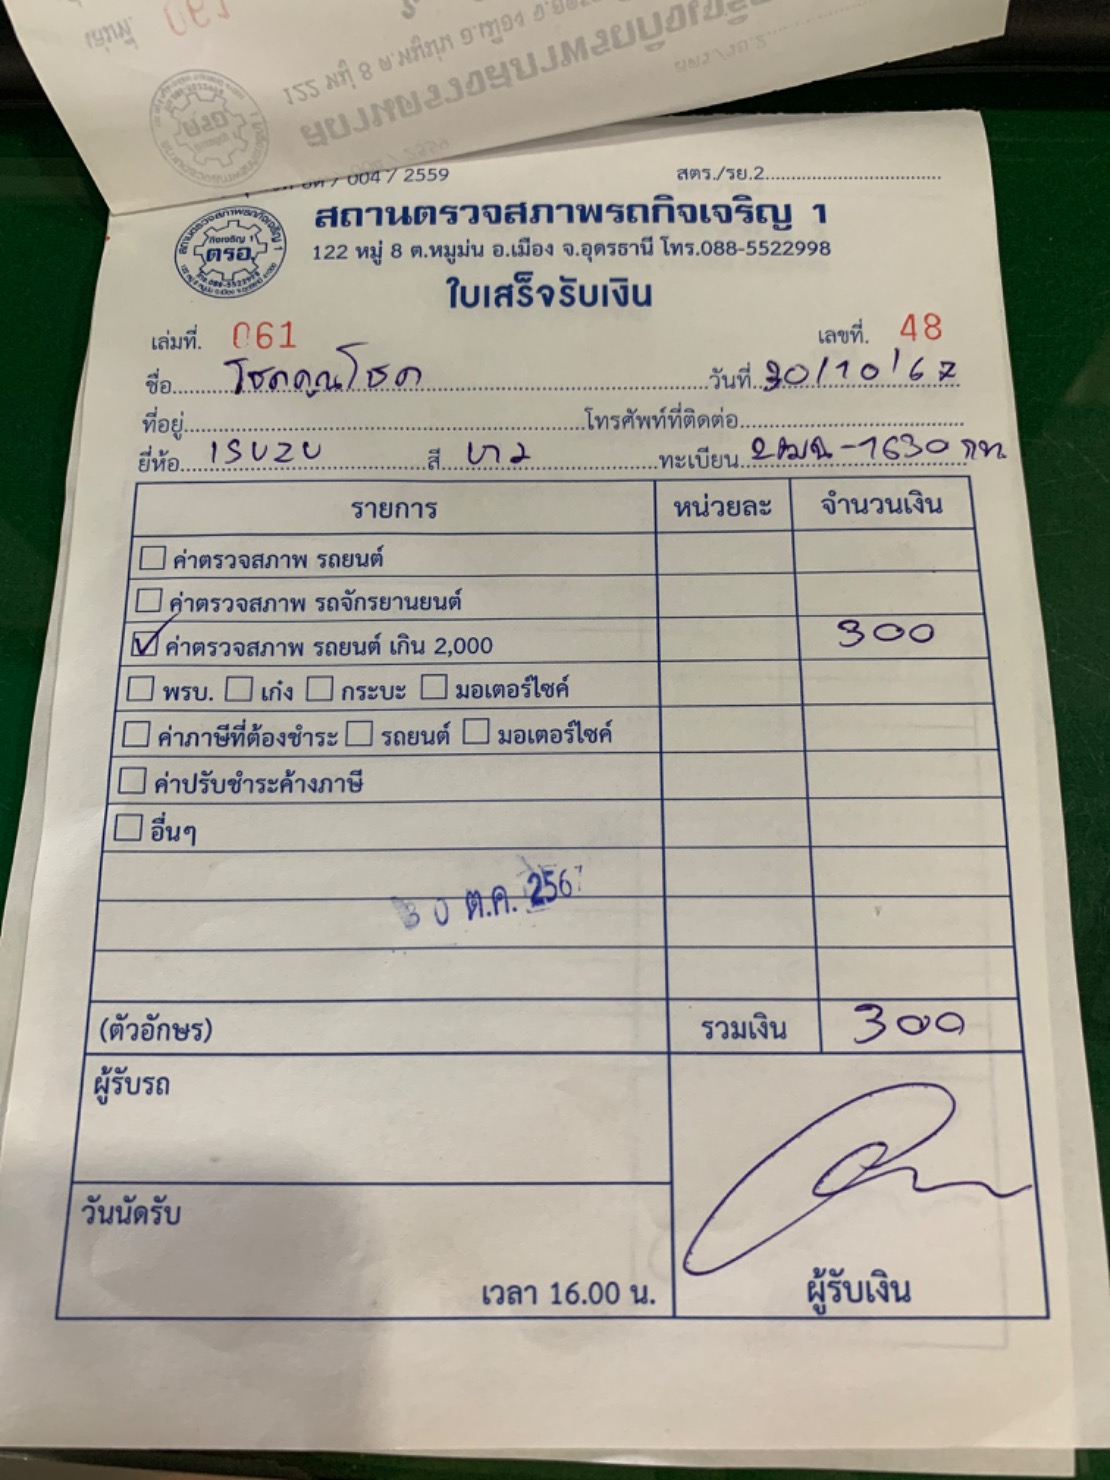 004 / 2559
สตร./รย.2
สถานตรวจสภาพรถกิจเจริญ 1
122 หมู่ 8 ต.หมูม่น อ.เมือง จ.อุดรธานี โทร.088-5522998
กิจเจริญ 1
ตรอ.
ใบเสร็จรับเงิน
เล่มที่. 061 เลขที่. 48
ชื่อ โชคคูณโชค วันที่ 30/10/67
ที่อยู่ โทรศัพท์ที่ติดต่อ
ยี่ห้อ ISUZU สี ขาว ทะเบียน 2ฒฉ-1630 กท.
รายการ หน่วยละ จำนวนเงิน
ค่าตรวจสภาพ รถยนต์
ค่าตรวจสภาพ รถจักรยานยนต์
ค่าตรวจสภาพ รถยนต์ เกิน 2,000 300
พรบ. เก๋ง กระบะ มอเตอร์ไซค์
ค่าภาษีที่ต้องชำระ รถยนต์ มอเตอร์ไซค์
ค่าปรับชำระค้างภาษี
อื่นๆ
30 ต.ค. 2567
(ตัวอักษร) รวมเงิน 300
ผู้รับรถ
วันนัดรับ
เวลา 16.00 น. ผู้รับเงิน